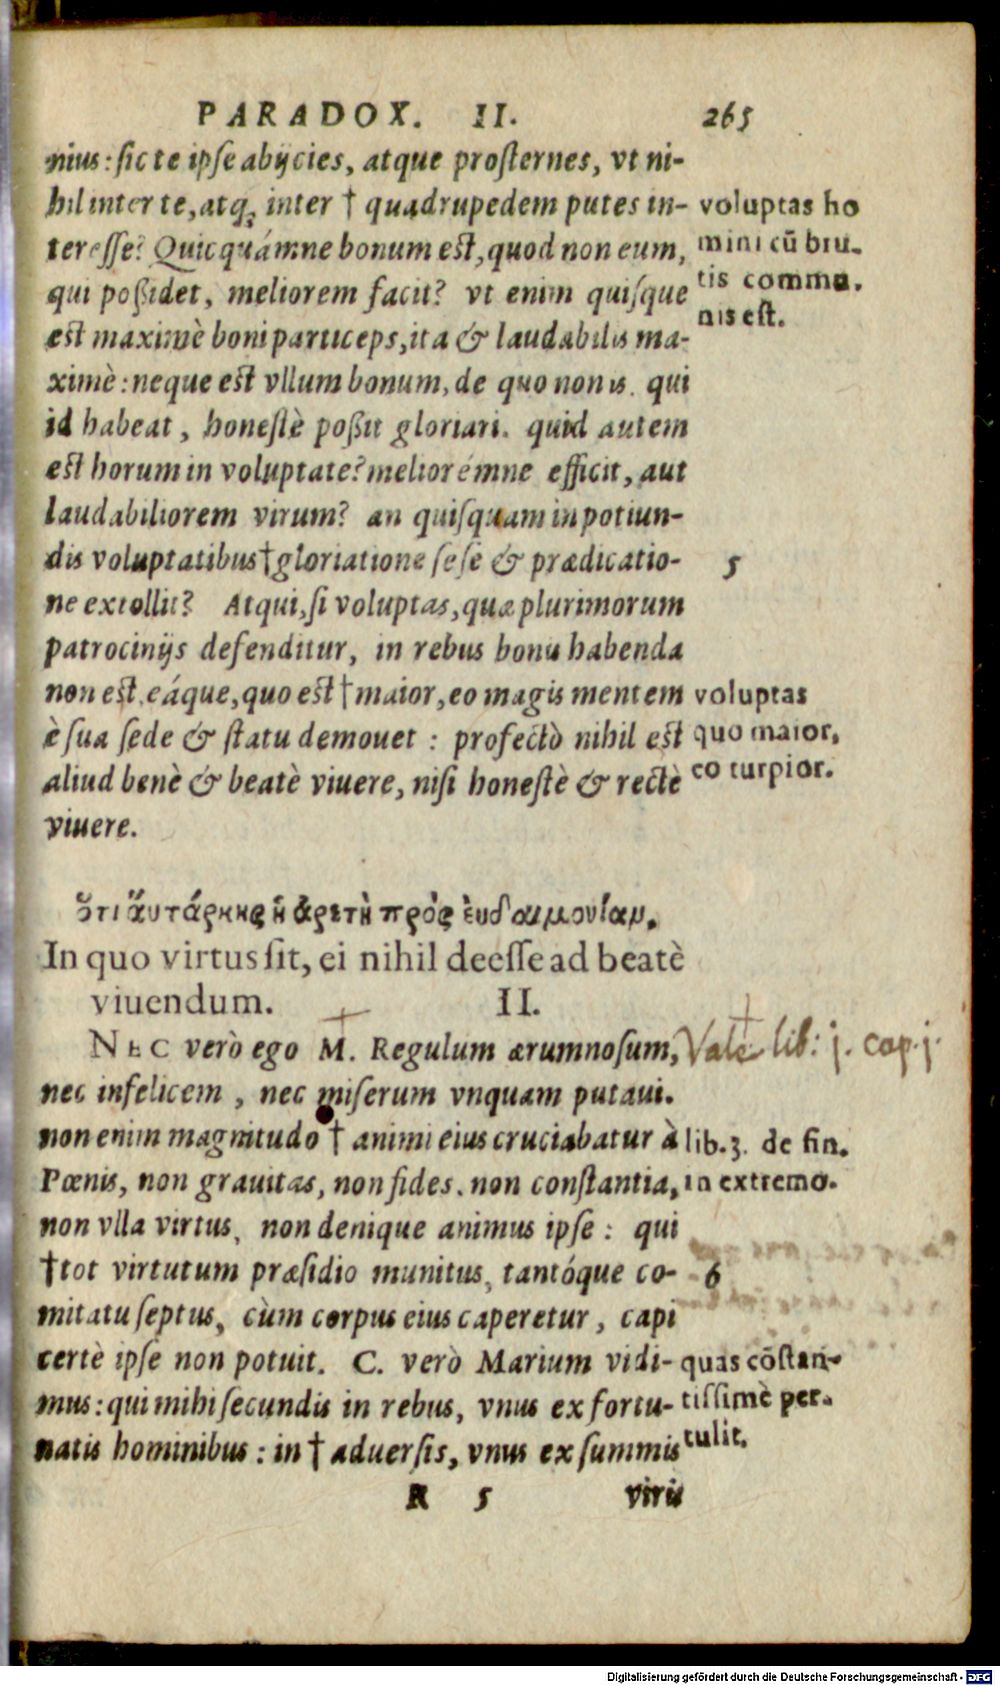 PARADOX. II. 265
nius: sic te ipse abijcies, atque prosternes, vt ni-
hil inter te, atq; inter † quadrupedem putes in-
voluptas ho
teresse? Quicquámne bonum est, quod non eum,
mini cū bru-
qui poßidet, meliorem facit? vt enim quisque
tis commu.
est maximè boni particeps, ita & laudabilis ma-
nis est.
ximè: neque est vllum bonum, de quo non is. qui
id habeat, honestè poßit gloriari. quid autem
est horum in voluptate? meliorémne efficit, aut
laudabiliorem virum? an quisquam in potiun-
dis voluptatibus † gloriatione sese & prædicatio-
5
ne extollit? Atqui, si voluptas, quæ plurimorum
patrocinijs defenditur, in rebus bonis habenda
non est, eáque, quo est † maior, eo magis mentem
voluptas
è sua sede & statu demouet : profectò nihil est
quo maior,
aliud benè & beatè viuere, nisi honestè & rectè
eo turpior.
viuere.
ὅτι ἀυτάρκης ἡ ἀρετὴ πρὸς ἐυδαιμονίαν.
In quo virtus sit, ei nihil deesse ad beatè
viuendum. II.
NEC verò ego M. Regulum ærumnosum,
Vale lib: j. cap. j.
nec infelicem, nec miserum vnquam putaui.
non enim magnitudo † animi eius cruciabatur à
lib. 3. de fin.
Pœnis, non grauitas, non fides, non constantia,
in extremo.
non vlla virtus, non denique animus ipse: qui
† tot virtutum præsidio munitus, tantóque co-
6
mitatu septus, cùm corpus eius caperetur, capi
certè ipse non potuit. C. verò Marium vidi-
quas cōstan-
mus: qui mihi secundis in rebus, vnus ex fortu-
tissimè per-
natis hominibus: in † aduersis, vnus ex summis
tulit.
R 5 viris
Digitalisierung gefördert durch die Deutsche Forschungsgemeinschaft - DFG